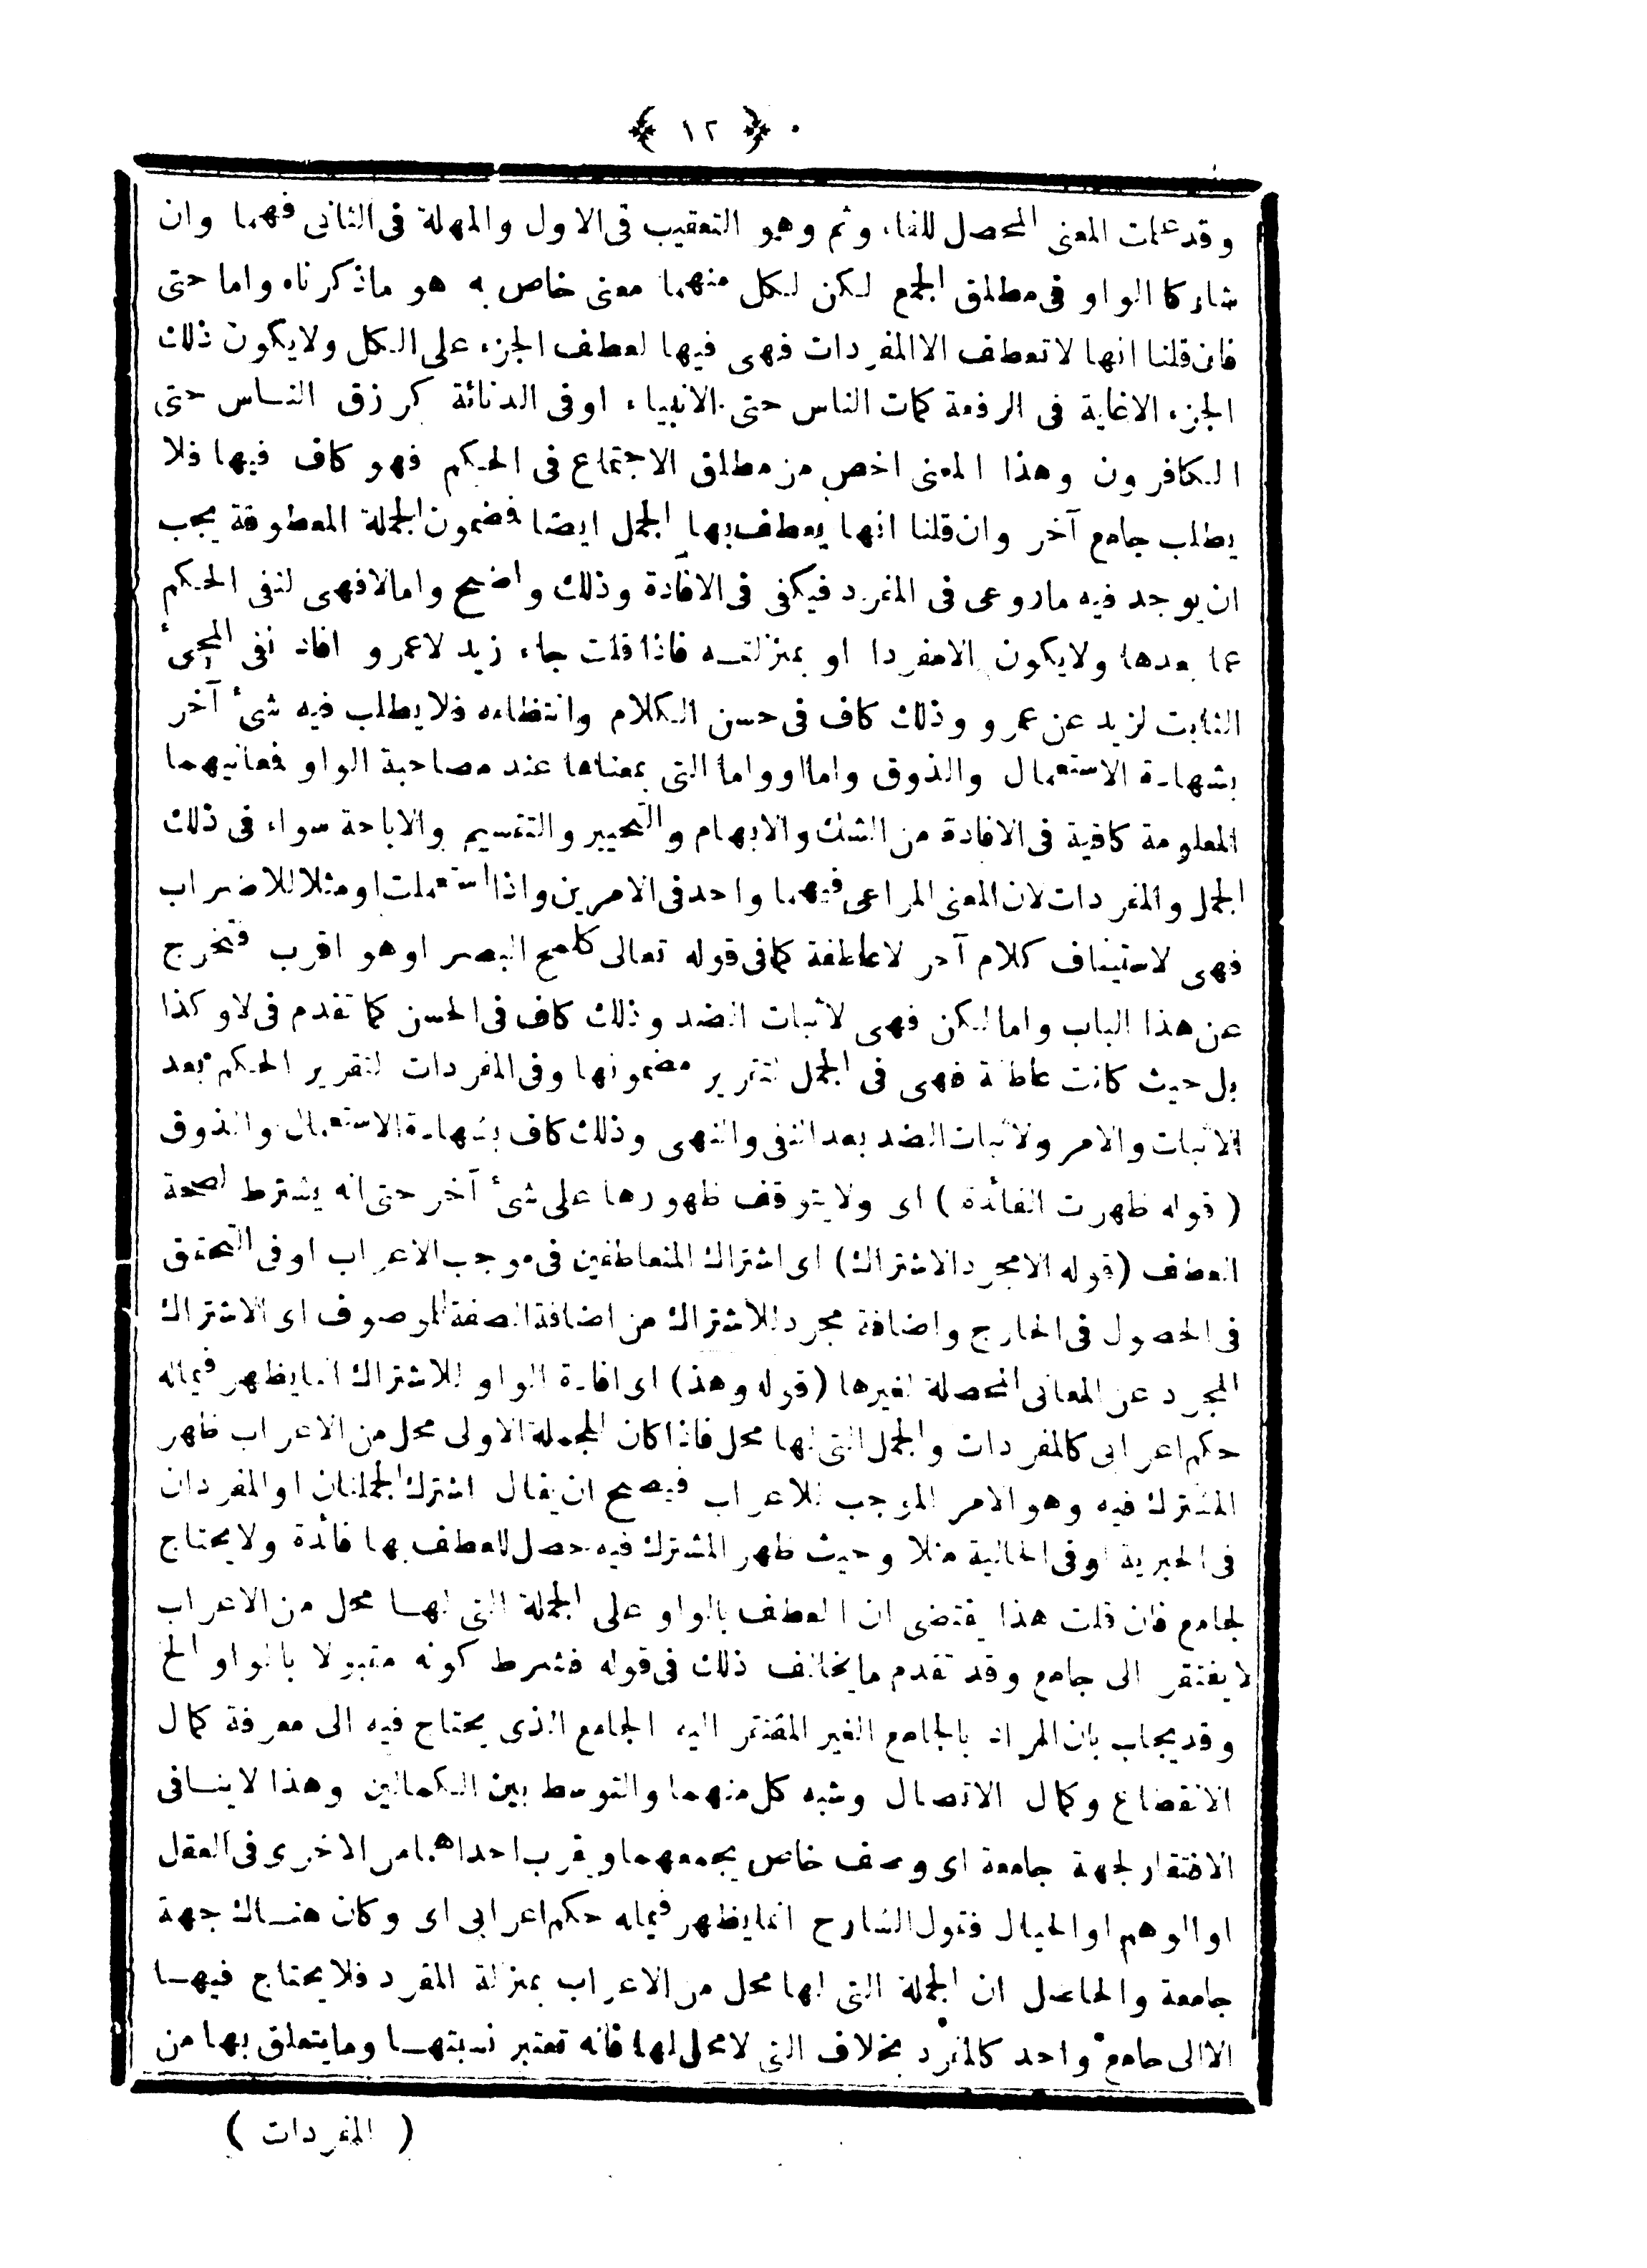 ﴿ ١٢ ﴾
وقد علمت المعنى المحصل للفاء وثم وهو التعقيب فى الاول والمهلة فى الثانى فهما وان
شاركا الواو فى مطلق الجمع لكن لكل منهما معنى خاص به هو ماذكرناه واما حتى
فان قلنا انها لا تعطف الا المفردات فهى فيها لعطف الجزء على الكل ولا يكون ذلك
الجزء الاغاية فى الرفعة كمات الناس حتى الانبياء او فى الدنائة كرزق الناس حتى
الكافرون وهذا المعنى اخص من مطلق الاجتماع فى الحكم فهو كاف فيها فلا
يطلب جامع آخر وان قلنا انها يعطف بها الجمل ايضا فمضمون الجملة المعطوفة يجب
ان يوجد فيه ماروعى فى المفرد فيكفى فى الافادة وذلك واضح واما لا فهى لنفى الحكم
عما بعدها ولا يكون الا مفردا او بمنزلته فاذا قلت جاء زيد لا عمرو افاد نفى المجىء
الثابت لزيد عن عمرو وذلك كاف فى حسن الكلام وانتظامه فلا يطلب فيه شىء آخر
بشهادة الاستعمال والذوق واما او واما التى بمعناها عند مصاحبة الواو فمعانيهما
المعلومة كافية فى الافادة من الشك والابهام والتخيير والتقسيم والاباحة سواء فى ذلك
الجمل والمفردات لان المعنى المراعى فيهما واحد فى الامرين واذا استعملت او مثلا للاضراب
فهى لاستيناف كلام آخر لا عاطفة كما فى قوله تعالى كلمح البصر او هو اقرب فتخرج
عن هذا الباب واما لكن فهى لاثبات الضد وذلك كاف فى الحسن كما تقدم فى لا وكذا
بل حيث كانت عاطفة فهى فى الجمل لتقرير مضمونها وفى المفردات لتقرير الحكم بعد
الاثبات والامر ولاثبات الضد بعد النفى والنهى وذلك كاف بشهادة الاستعمال والذوق
( قوله ظهرت الفائدة ) اى ولا يتوقف ظهورها على شىء آخر حتى انه يشترط لصحة
العطف (قوله الا مجرد الاشتراك) اى اشتراك المتعاطفين فى موجب الاعراب او فى التحقق
فى الحصول فى الخارج واضافة مجرد للاشتراك من اضافة الصفة للموصوف اى الاشتراك
المجرد عن المعانى المحصلة لغيرها (قوله وهذا) اى افادة الواو للاشتراك انما يظهر فيماله
حكم اعرابى كالمفردات والجمل التى لها محل فاذا كان للجملة الاولى محل من الاعراب ظهر
المشترك فيه وهو الامر الموجب للاعراب فيصح ان يقال اشترك الجملتان او المفردان
فى الخبرية او فى الحالية مثلا وحيث ظهر المشترك فيه حصل للعطف بها فائدة ولا يحتاج
لجامع فان قلت هذا يقتضى ان العطف بالواو على الجملة التى لها محل من الاعراب
لا يفتقر الى جامع وقد تقدم ما يخالف ذلك فى قوله فشرط كونه مقبولا بالواو الخ
وقد يجاب بان المراد بالجامع الغير المفتقر اليه الجامع الذى يحتاج فيه الى معرفة كمال
الانقطاع وكمال الاتصال وشبه كل منهما والتوسط بين الكمالين وهذا لا ينافى
الافتقار لجهة جامعة اى وصف خاص يجمعهما ويقرب احداهما من الاخرى فى العقل
او الوهم او الخيال فقول الشارح انما يظهر فيماله حكم اعرابى اى وكان هناك جهة
جامعة والحاصل ان الجملة التى لها محل من الاعراب بمنزلة المفرد فلا يحتاج فيها
الا الى جامع واحد كالمفرد بخلاف التى لا محل لها فانه تعتبر نسبتها وما يتعلق بها من
( المفردات )